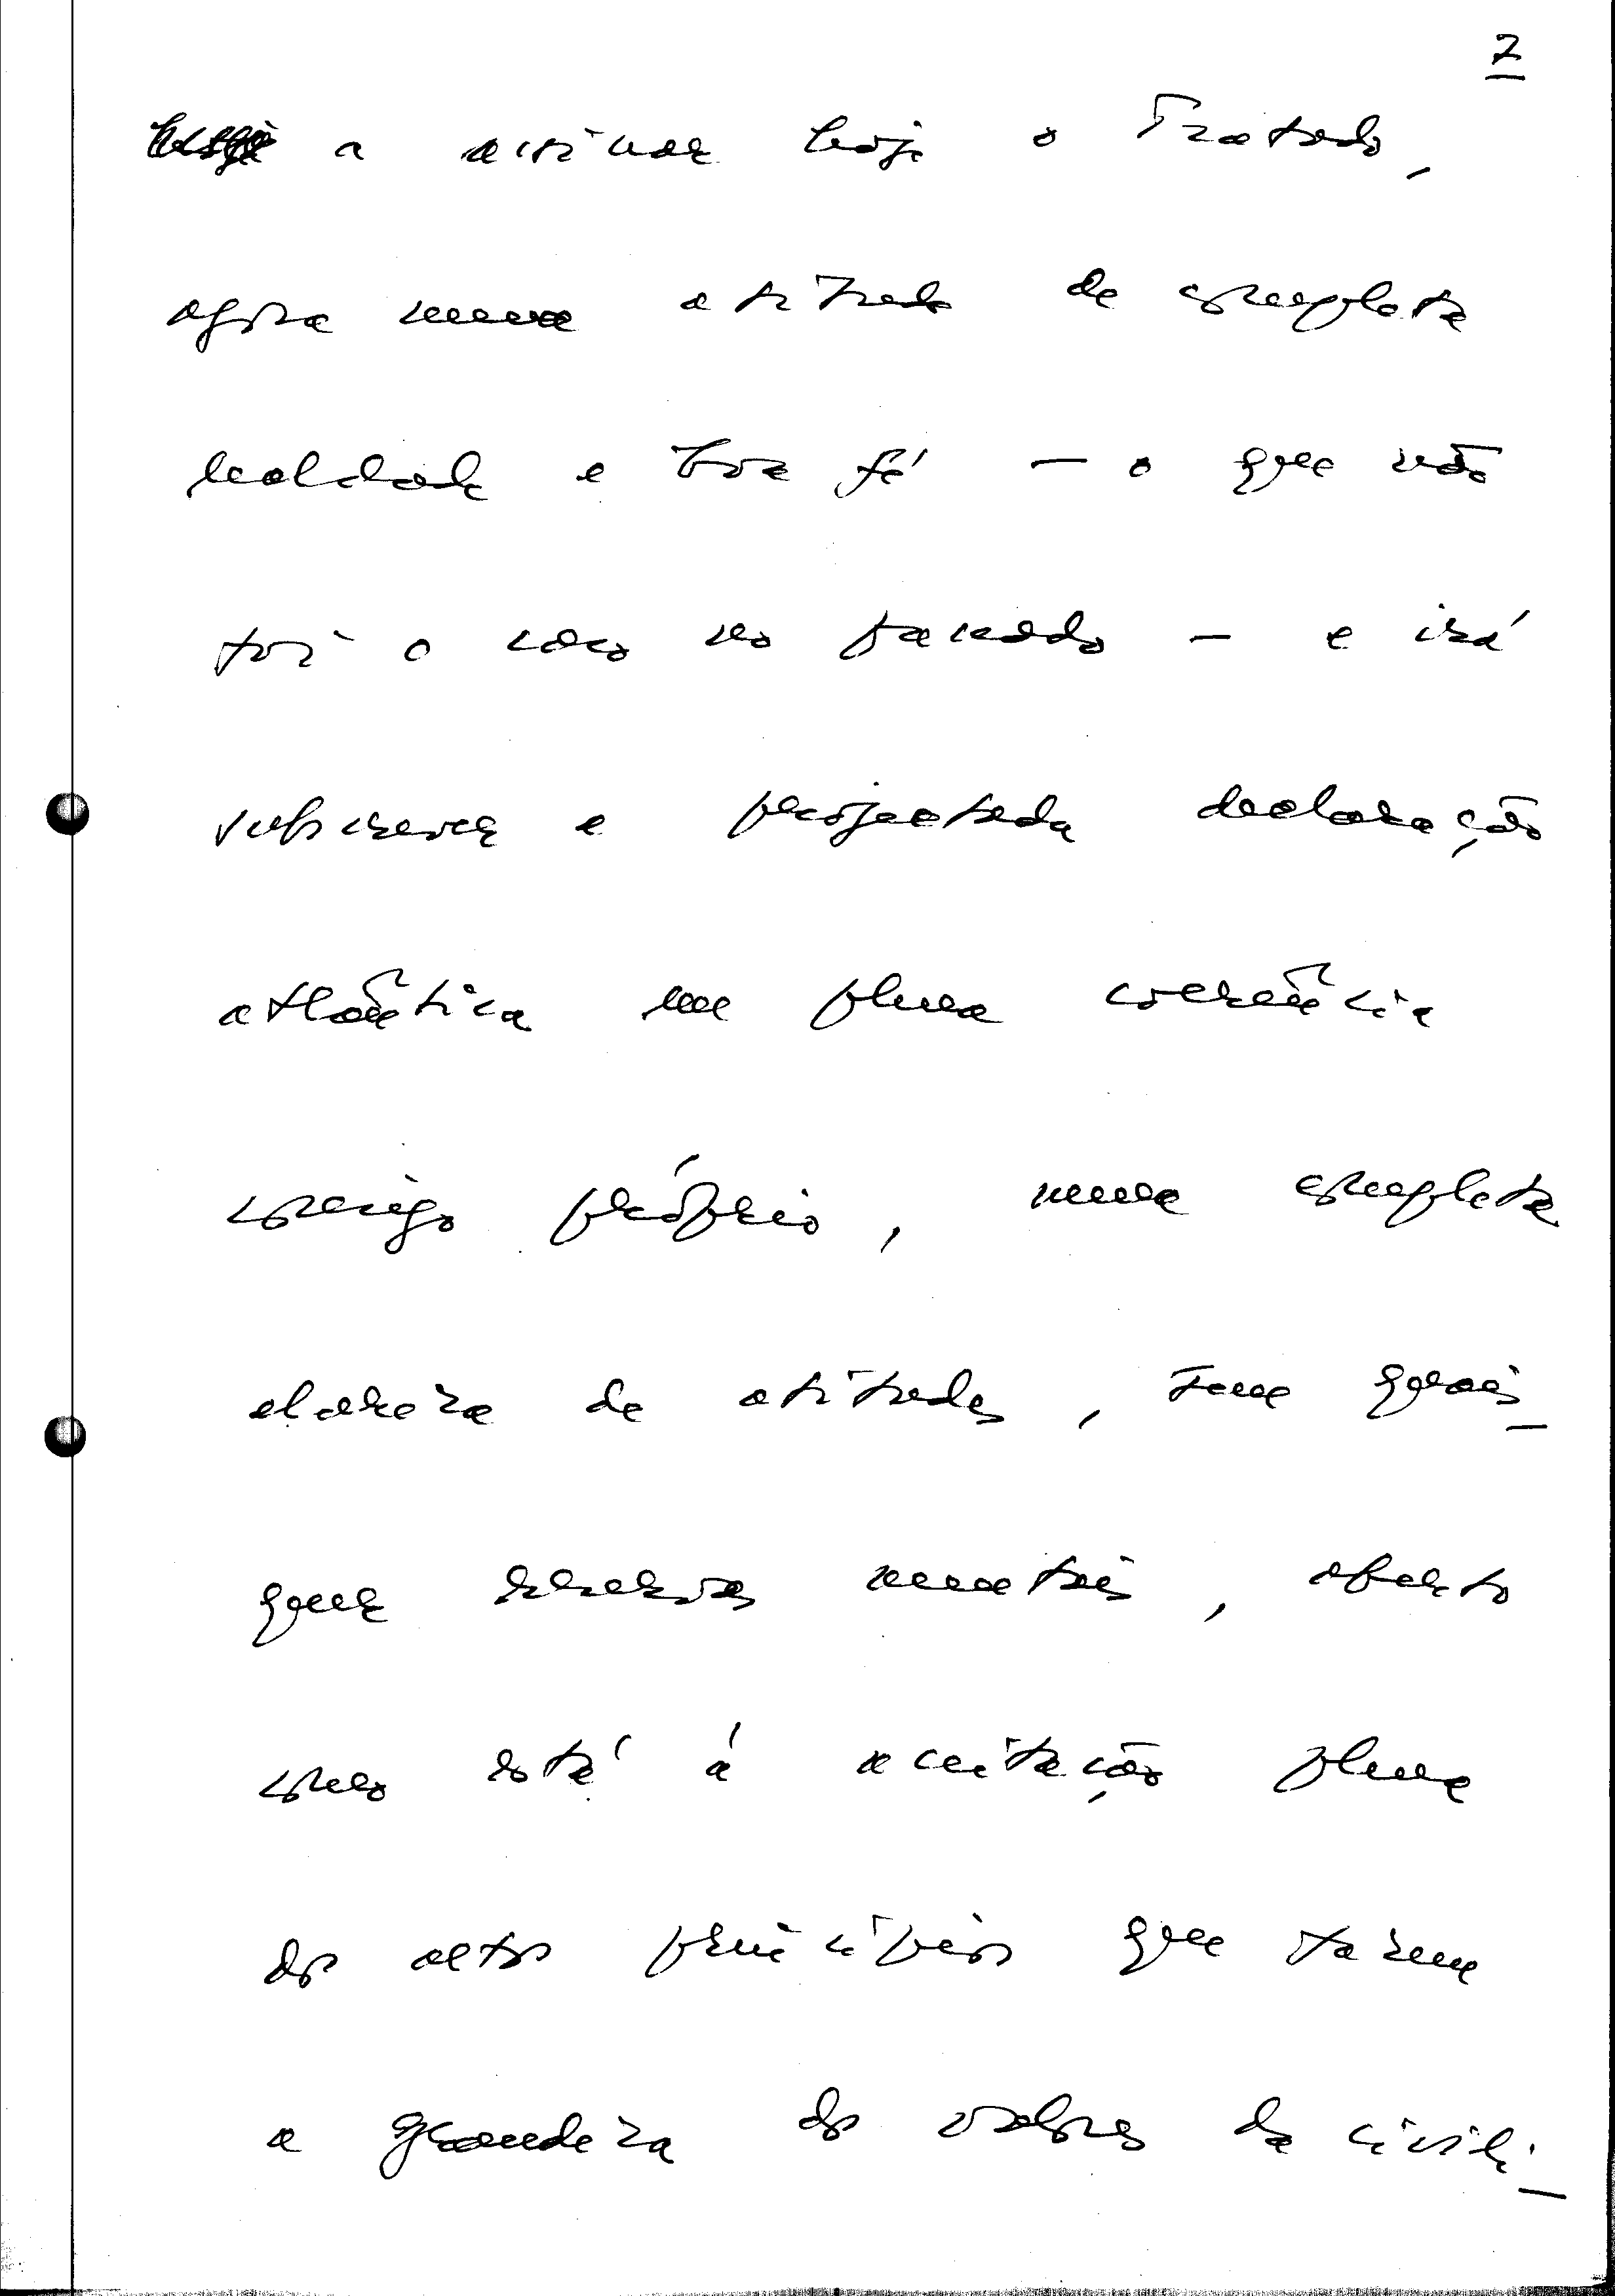 7
a assinar hoje o Tratado,
agora numa atitude de completa
lealdade e boa fé — o que não
foi o caso no passado — e irá
subscrever a projectada declaração
atlântica em plena coerência
consigo próprio, numa completa
clareza de atitudes, sem quais-
quer reservas mentais, aberto
como está à aceitação plena
dos altos princípios que fazem
a grandeza dos valores da civili-